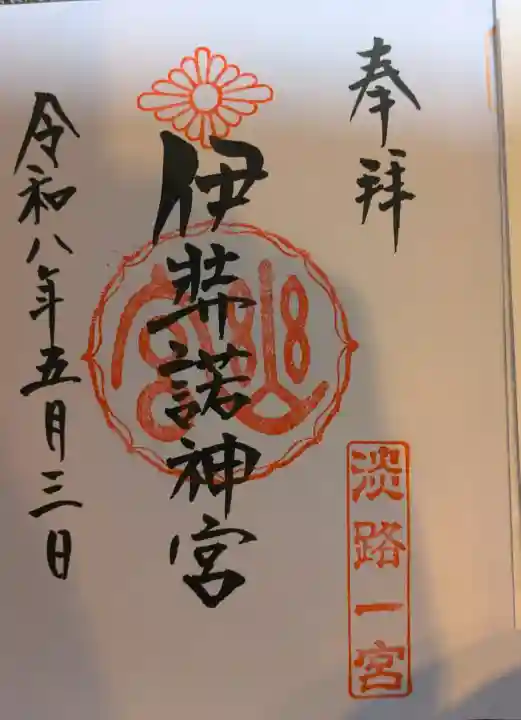 奉拝
淡路一宮
伊弉諾神宮
令和八年五月三日